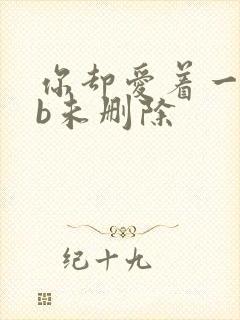 你却爱着一
b未删除
纪十九